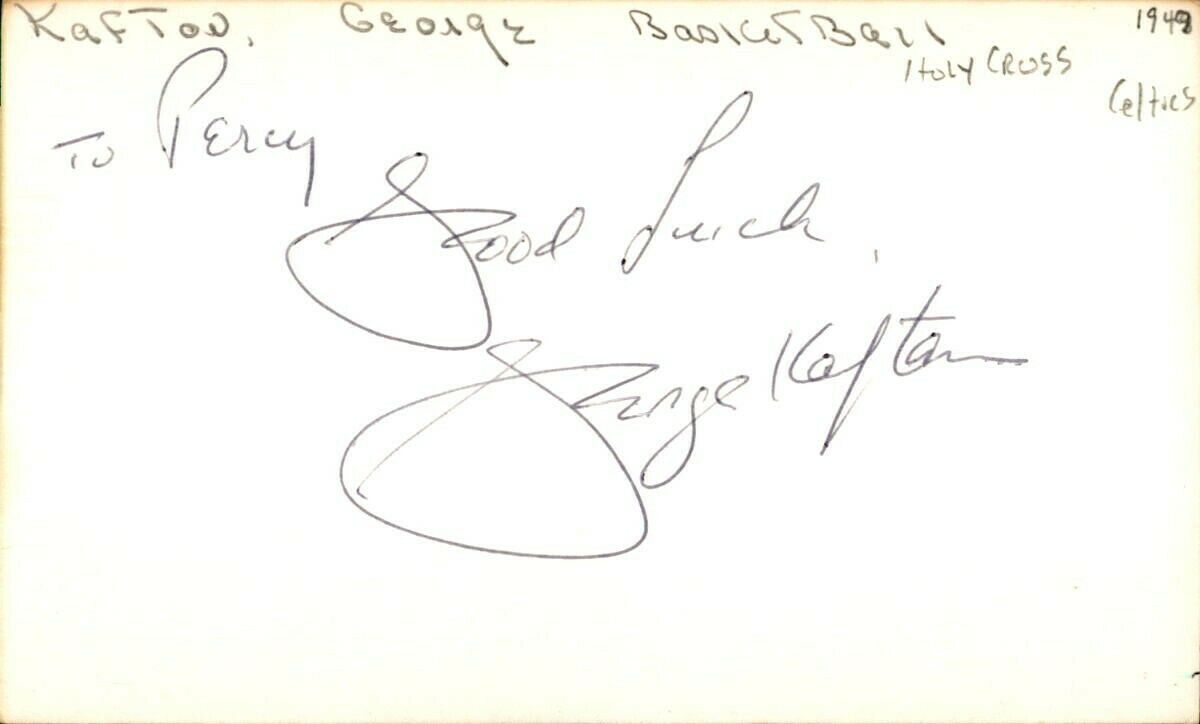 Kafton, George BasketBall 1949
Holy Cross
Celtics
To Percy
Good Luck,
George Kaftan